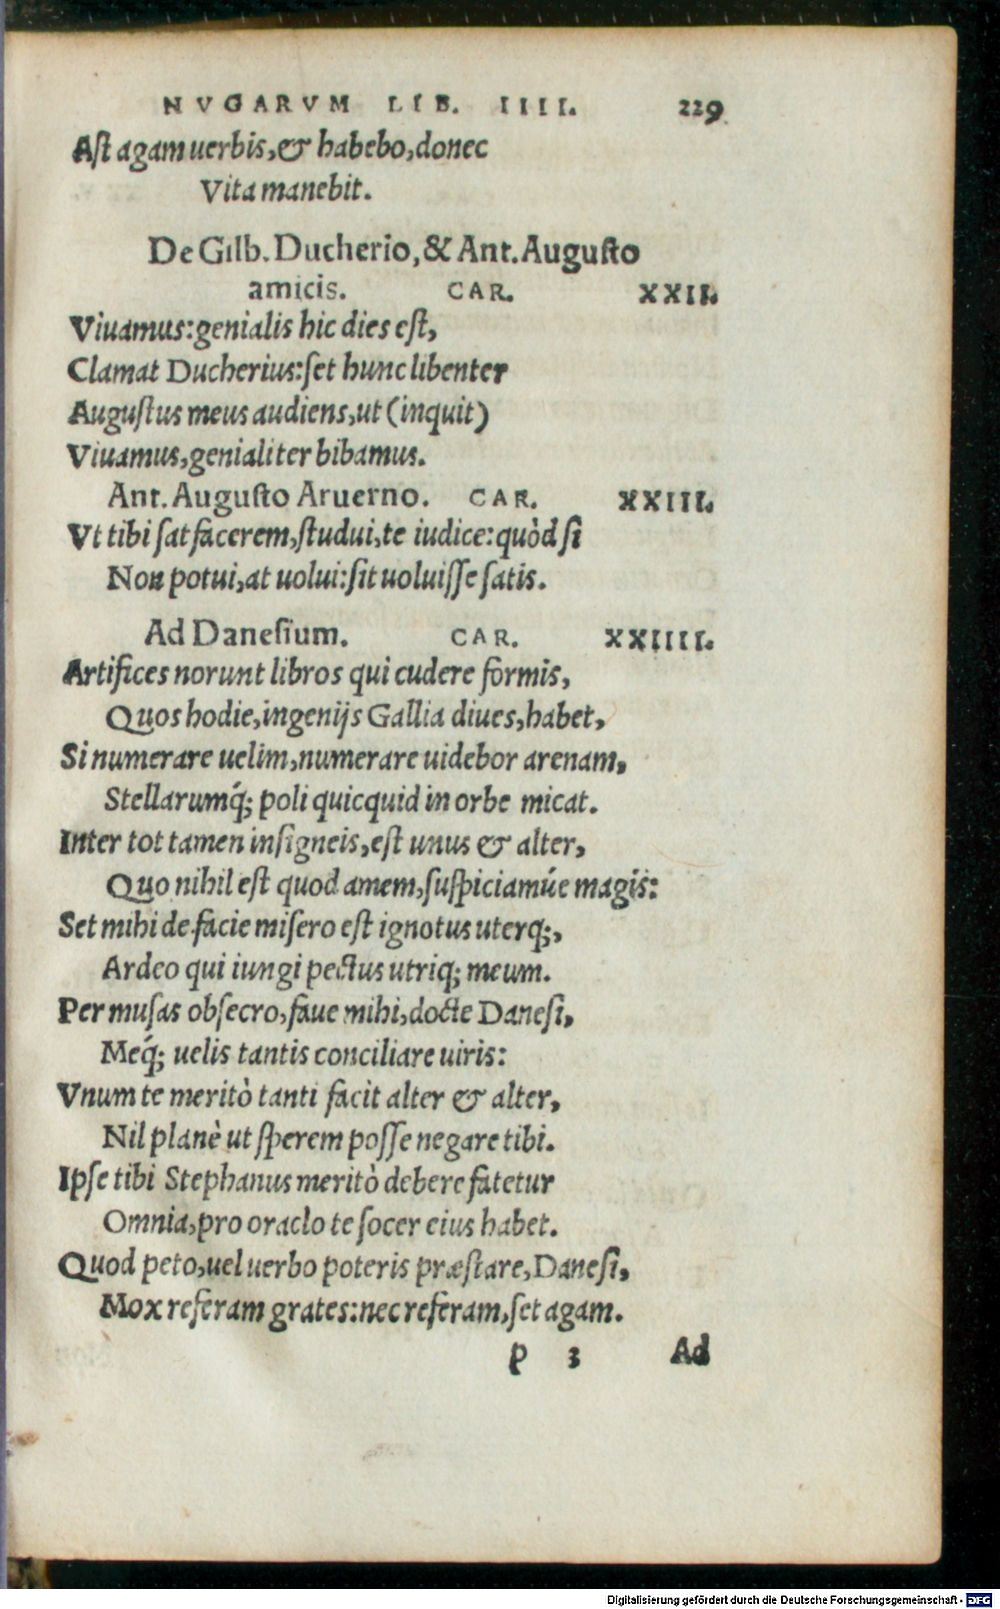 NVGARVM LIB. IIII. 229
Ast agam uerbis, & habebo, donec
Vita manebit.
De Gilb. Ducherio, & Ant. Augusto
amicis. CAR. XXII.
Viuamus: genialis hic dies est,
Clamat Ducherius: set hunc libenter
Augustus meus audiens, ut (inquit)
Viuamus, genialiter bibamus.
Ant. Augusto Aruerno. CAR. XXIII.
Vt tibi sat facerem, studui, te iudice: quòd si
Non potui, at uolui: sit uoluisse satis.
Ad Danesium. CAR. XXIIII.
Artifices norunt libros qui cudere formis,
Quos hodie, ingenijs Gallia diues, habet,
Si numerare uelim, numerare uidebor arenam,
Stellarumq́; poli quicquid in orbe micat.
Inter tot tamen insigneis, est unus & alter,
Quo nihil est quod amem, suspiciamúe magis:
Set mihi de facie misero est ignotus uterq;,
Ardeo qui iungi pectus utriq; meum.
Per musas obsecro, faue mihi, docte Danesi,
Meq́; uelis tantis conciliare uiris:
Vnum te meritò tanti facit alter & alter,
Nil planè ut sperem posse negare tibi.
Ipse tibi Stephanus meritò debere fatetur
Omnia, pro oraclo te socer eius habet.
Quod peto, uel uerbo poteris præstare, Danesi,
Mox referam grates: nec referam, set agam.
p 3 Ad
Digitalisierung gefördert durch die Deutsche Forschungsgemeinschaft - DFG